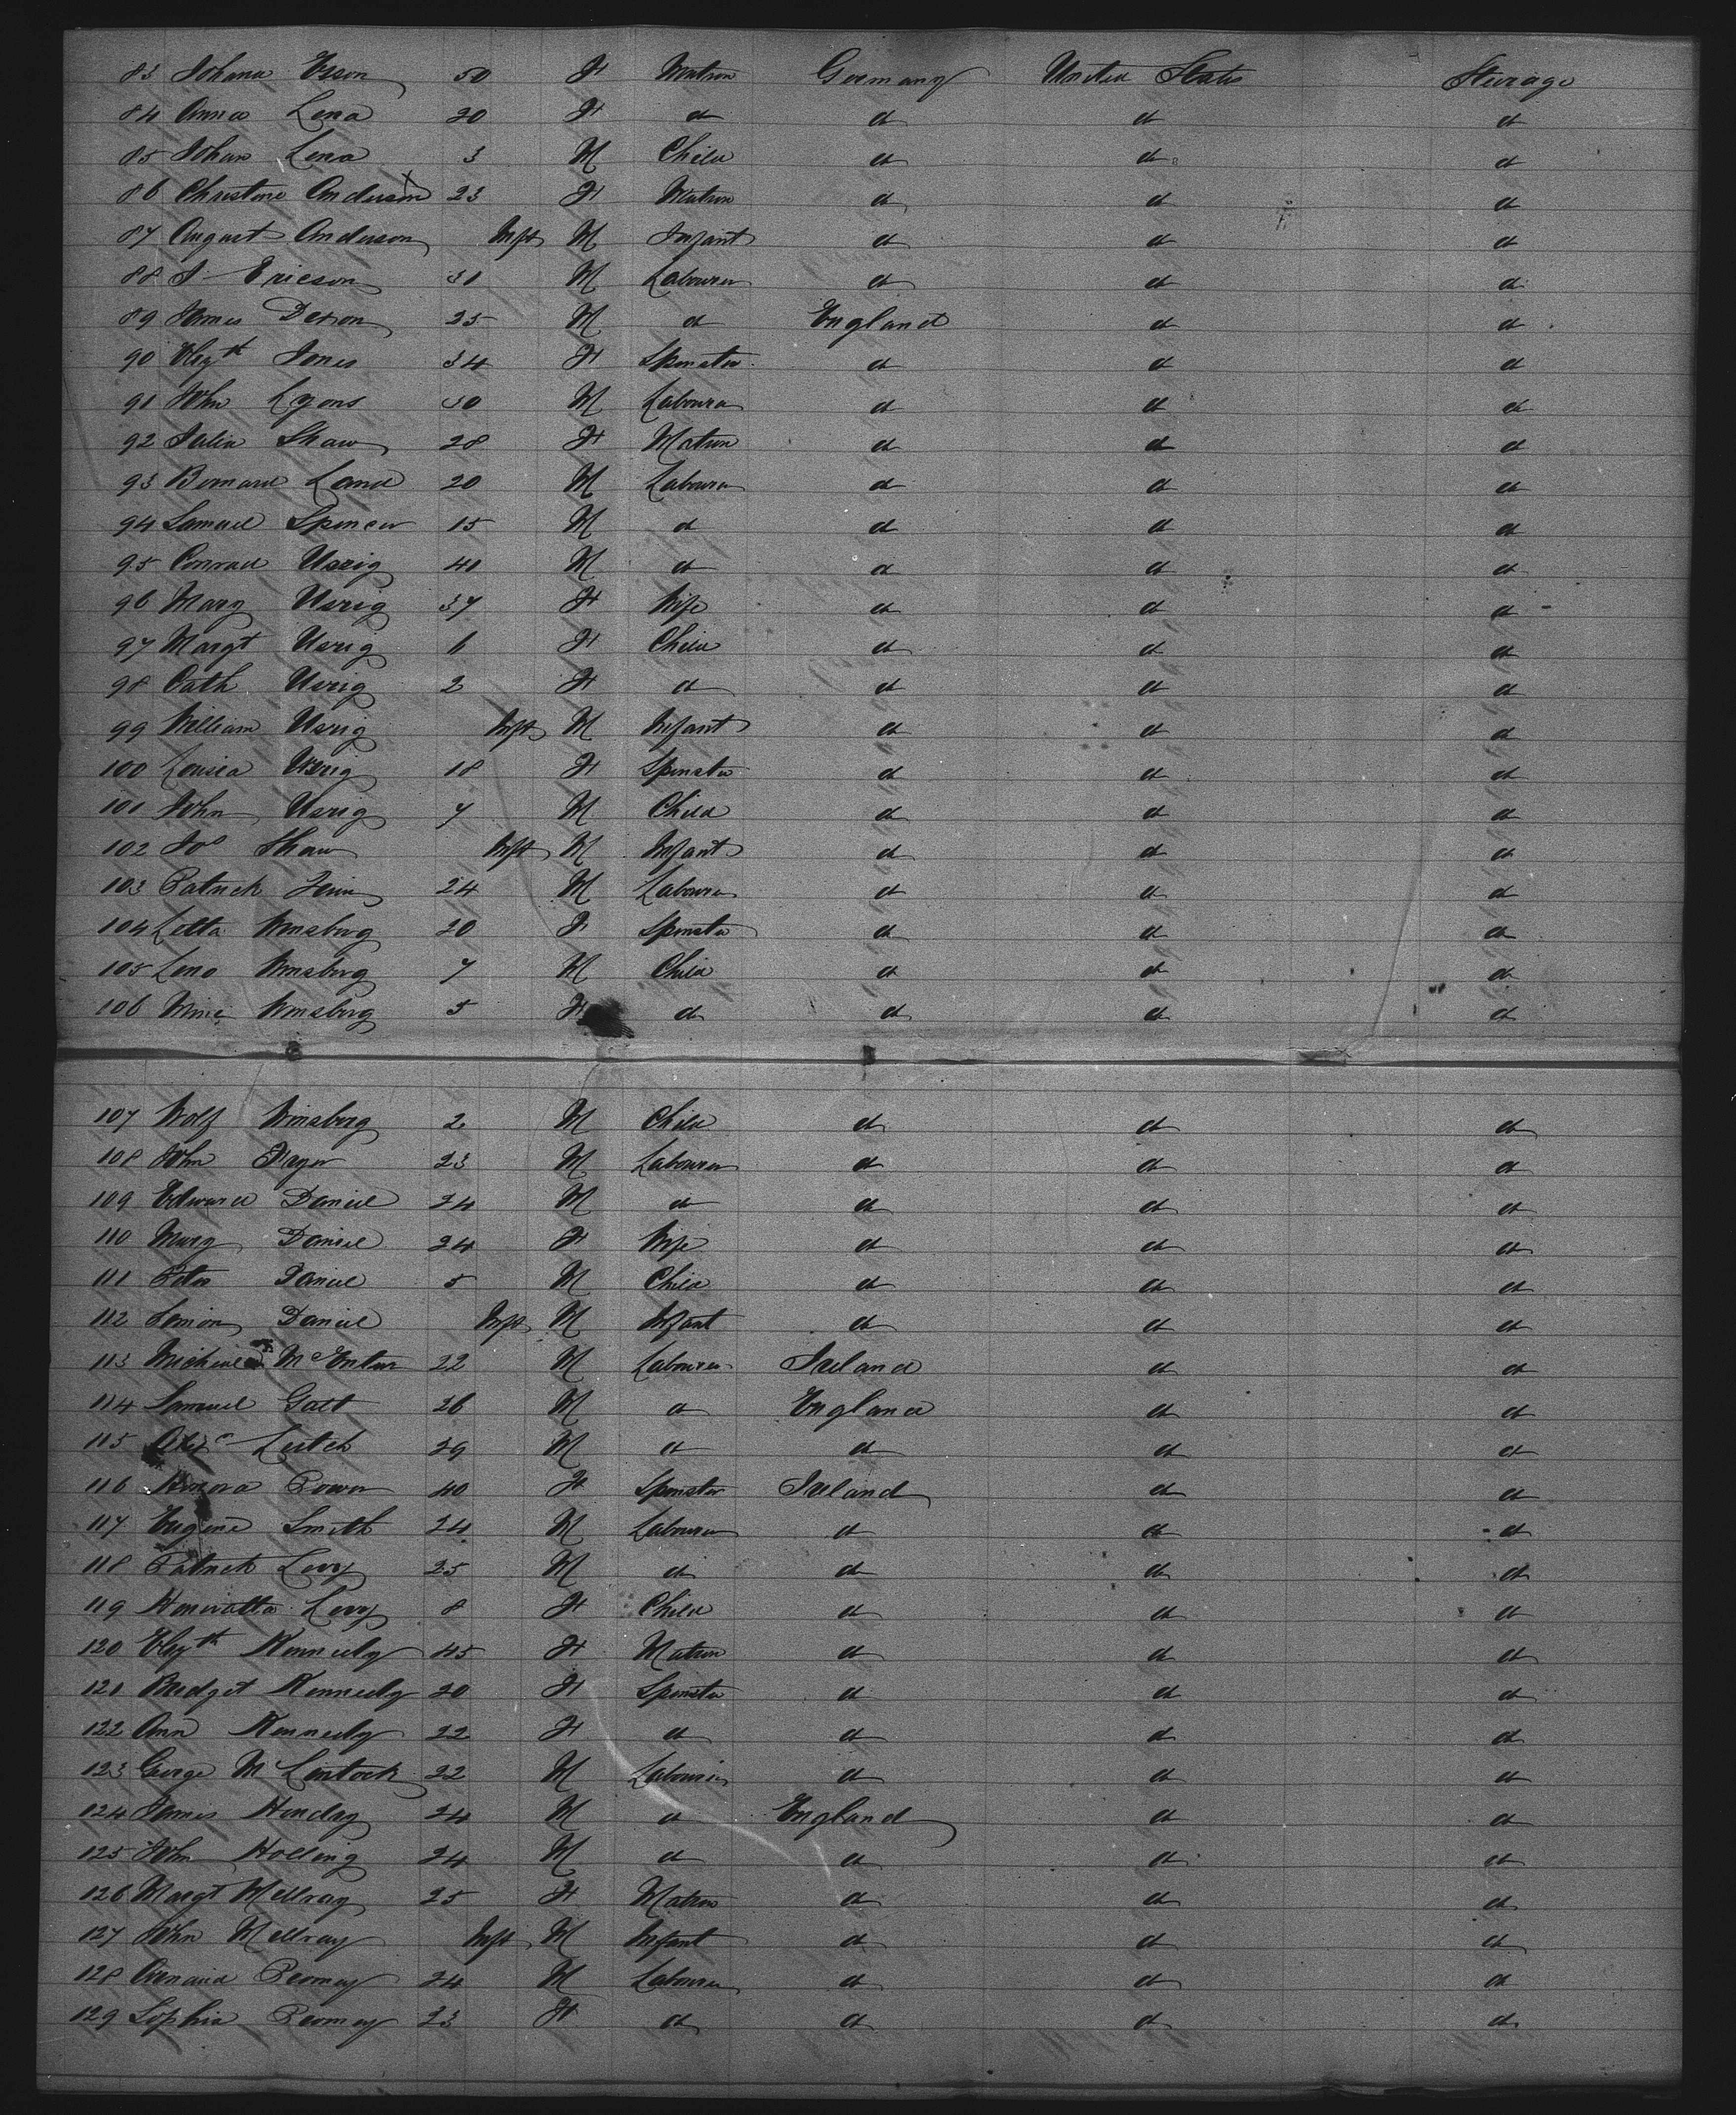 83 Johana Esson 50 F Matron Germany United States Steerage
84 Anna Lena 20 F d d d d
85 Johan Lena 3 M Child d d d
86 Christine Anderson 23 F Matron d d d
87 August Anderson Inft M Infant d d d
88 J Ericson 31 M Labourer d d d
89 James 25 M d England d d
90 Elizth Jones 34 F Spinster d d d
91 John Lyons 30 M Labourer d d d
92 Julia Shaw 28 F Matron d d d
93 Bernard Land 20 M Labourer d d d
94 Samuel Spencer 15 M d d d d
95 Conrad Usrig 40 M d d d d
96 Mary Usrig 37 F Wife d d d
97 Margt Usrig 6 F Child d d d
98 Cath Usrig 2 F d d d d
99 William Usrig Inft M Infant d d d
100 Lousia Usrig 18 F Spinster d d d
101 John Usrig 7 M Child d d d
102 Jos Shaw Inft M Infant d d d
103 Patrick 24 M Labourer d d d
104 Letta Winsberg 20 F Spinster d d d
105 Leno Winsberg 7 M Child d d d
106 Mine Winsberg 5 F d d d d
107 Wolf Winsberg 2 M Child d d d
108 John 23 M Labourer d d d
109 Edward Daniel 24 M d d d d
110 Mary Daniel 24 F Wife d d d
111 Peter Daniel 5 M Child d d d
112 Simion Daniel Inft M Infant d d d
113 Michael McEnter 22 M Labourer Ireland d d
114 Samuel Galt 26 M d England d d
115 Leitch 29 M d d d d
116 Honora Power 40 F Spinster Ireland d d
117 Eugene Smith 24 M Labourer d d d
118 Patrick Levy 25 M d d d d
119 Henriatta Levy 8 F Child d d d
120 Elizth Kennedy 45 F Matron d d d
121 Bridget Kennedy 20 F Spinster d d d
122 Ann Kennedy 22 F d d d d
123 George McLintock 22 M Labourer d d d
124 James Henday 24 M d England d d
125 John Holling 24 M d d d d
126 Margt McIlray 25 F Matron d d d
127 John McIlray Inft M Infant d d d
128 Peomey 24 M Labourer d d d
129 Sophia Peomey 23 F d d d d